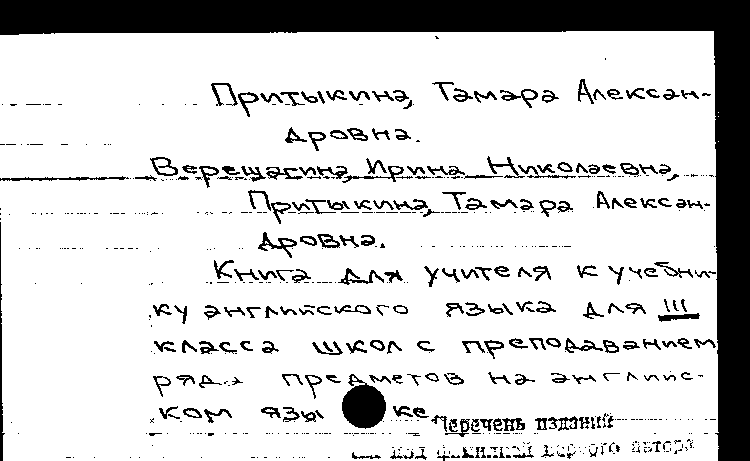 Притыкина, Тамара Алексан-
дровна.
Верещагина, Ирина Николаевна,
Притыкина, Тамара Алексан-
дровна.
Книга для учителя к учебни-
ку английского языка для III
класса школ с преподаванием
ряда предметов на английс-
ком языке.
Перечень изданий
под фамилией первого автора